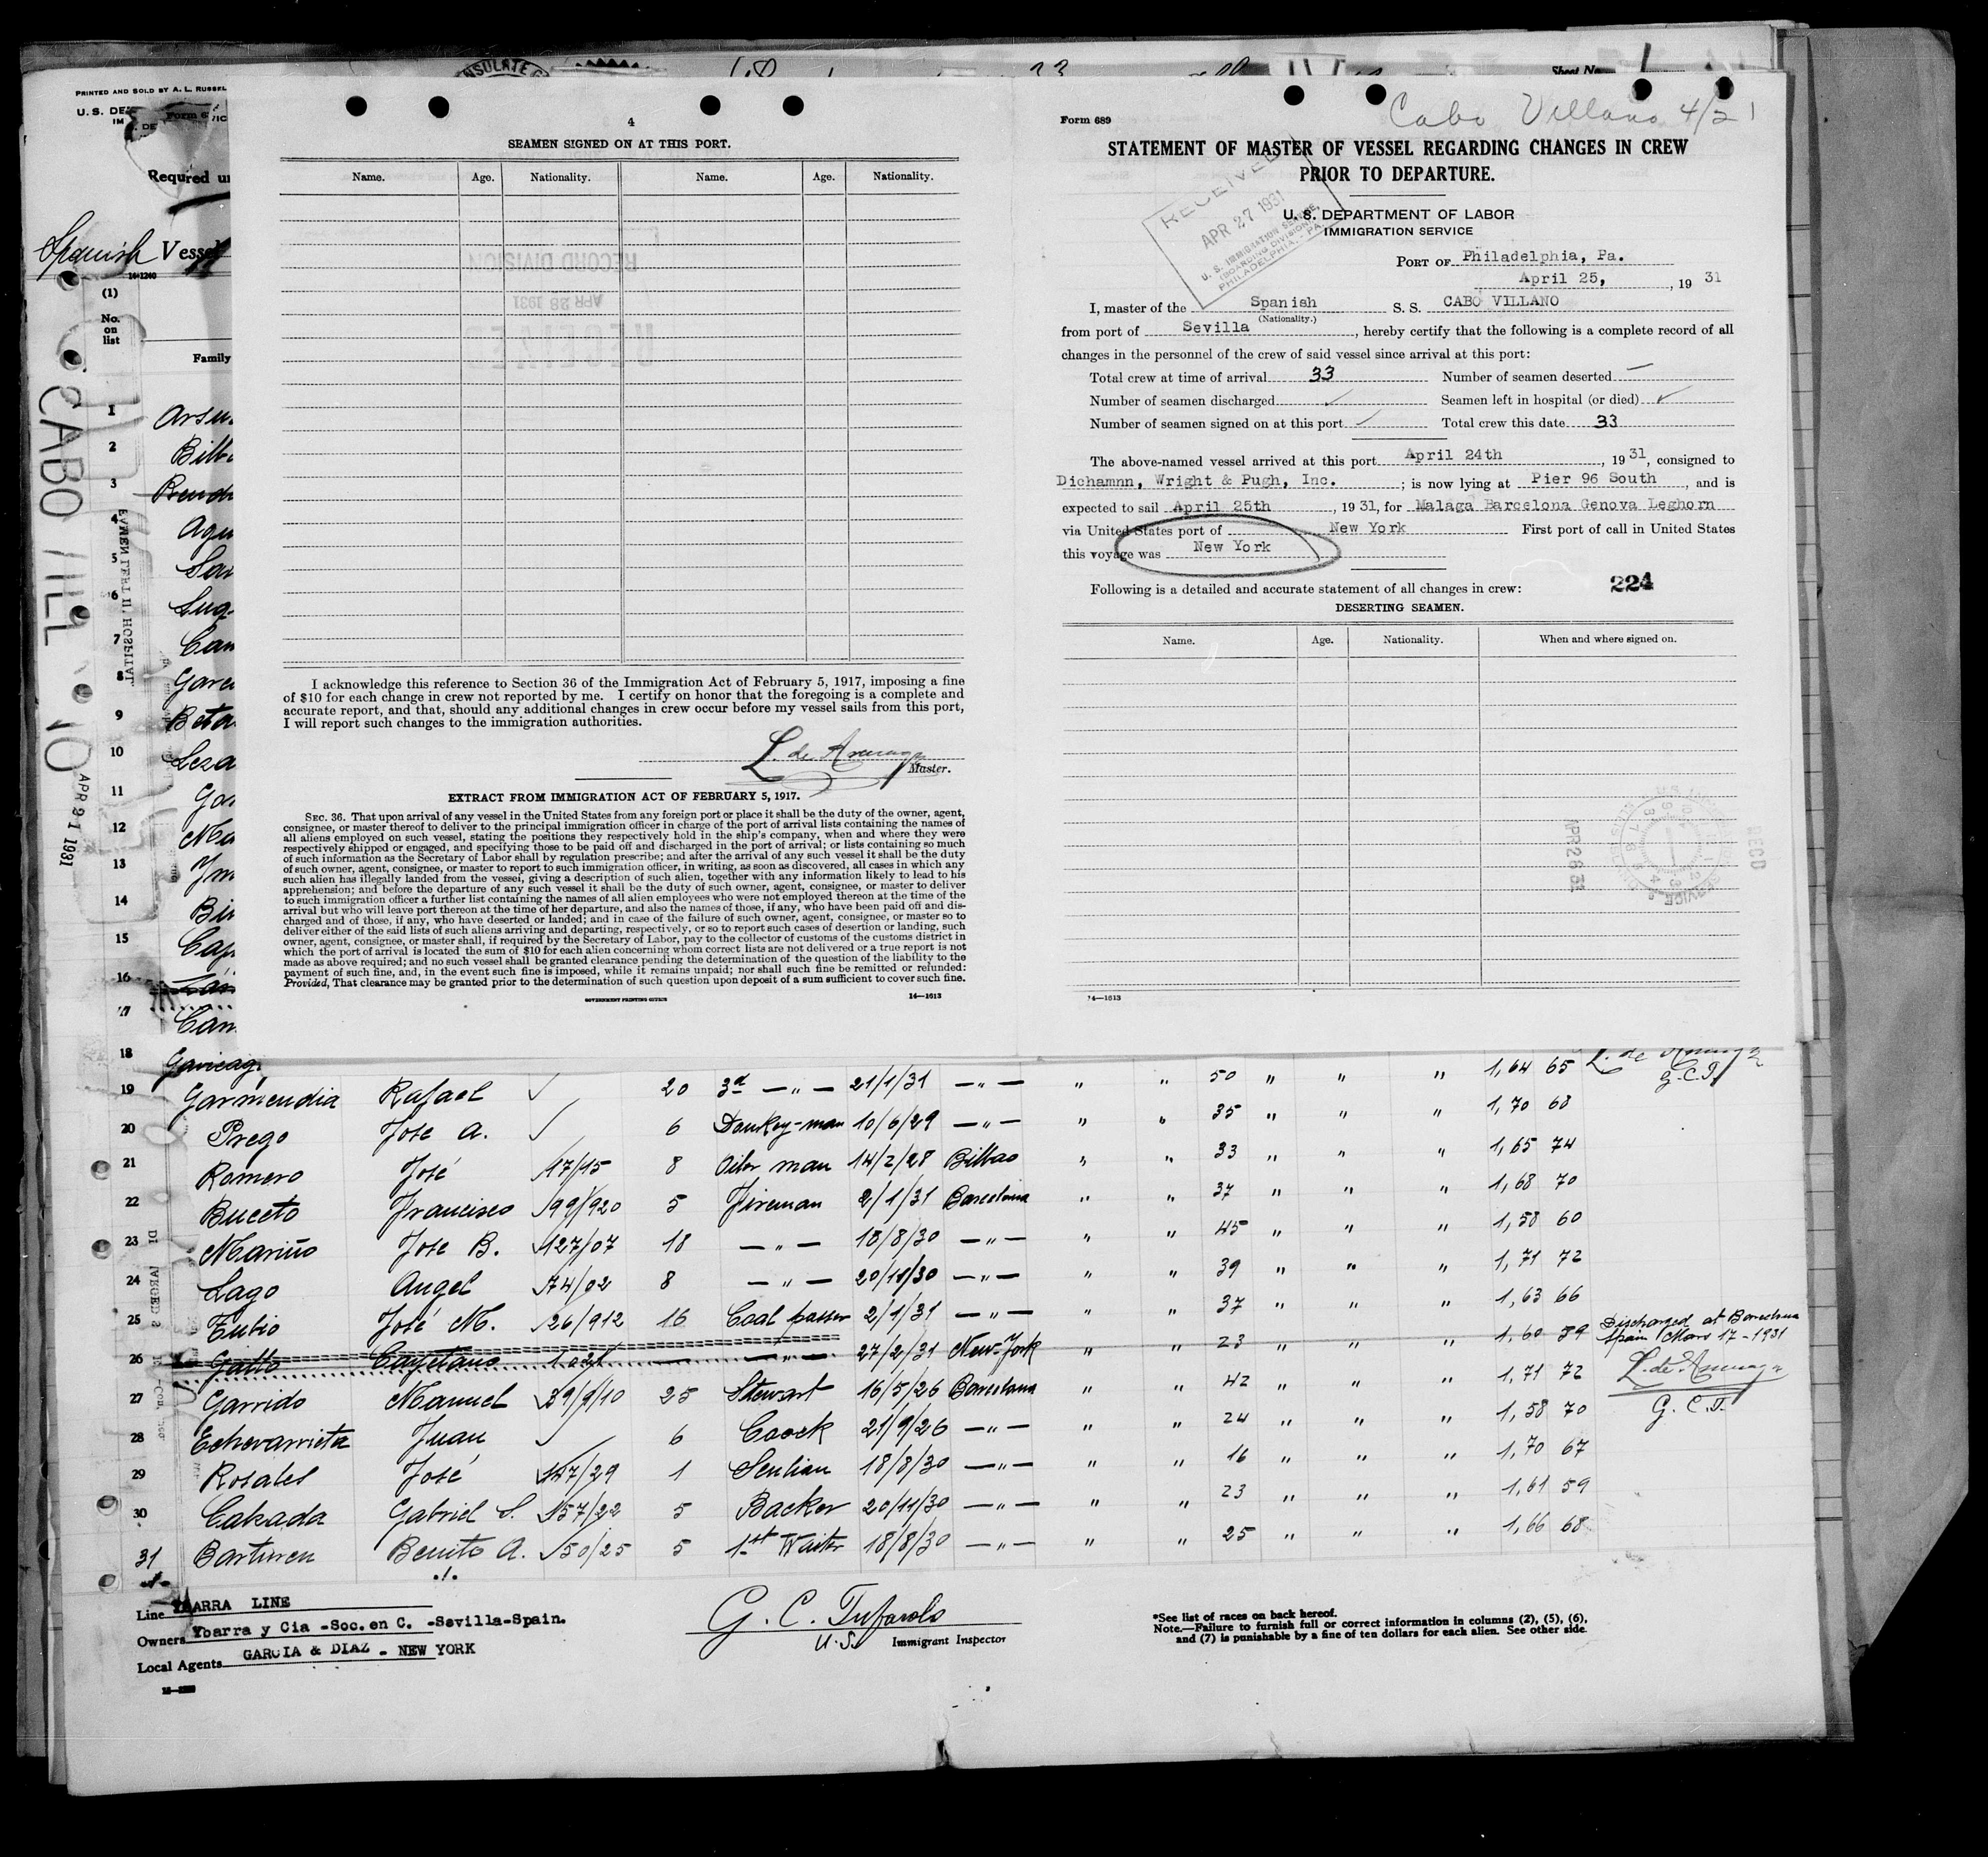 PRINTED AND SOLD BY A. L. RUSSEL
Required
Spanish Vessel
14-1240
(1)
No.
on
list
Family
CABO VILL
APR 21 1931
4
SEAMEN SIGNED ON AT THIS PORT.
Name. Age. Nationality. Name. Age. Nationality.
RECORD DIVISION
APR 28 1931
RECEIVED
I acknowledge this reference to Section 36 of the Immigration Act of February 5, 1917, imposing a fine
of $10 for each change in crew not reported by me. I certify on honor that the foregoing is a complete and
accurate report, and that, should any additional changes in crew occur before my vessel sails from this port,
I will report such changes to the immigration authorities.
Master.
EXTRACT FROM IMMIGRATION ACT OF FEBRUARY 5, 1917.
SEC. 36. That upon arrival of any vessel in the United States from any foreign port or place it shall be the duty of the owner, agent,
consignee, or master thereof to deliver to the principal immigration officer in charge of the port of arrival lists containing the names of
all aliens employed on such vessel, stating the positions they respectively hold in the ship's company, when and where they were
respectively shipped or engaged, and specifying those to be paid off and discharged in the port of arrival; or lists containing so much
of such information as the Secretary of Labor shall by regulation prescribe; and after the arrival of any such vessel it shall be the duty
of such owner, agent, consignee, or master to report to such immigration officer, in writing, as soon as discovered, all cases in which any
such alien has illegally landed from the vessel, giving a description of such alien, together with any information likely to lead to his
apprehension; and before the departure of any such vessel it shall be the duty of such owner, agent, consignee, or master to deliver
to such immigration officer a further list containing the names of all alien employees who were not employed thereon at the time of the
arrival but who will leave port thereon at the time of her departure, and also the names of those, if any, who have been paid off and dis-
charged and of those, if any, who have deserted or landed; and in case of the failure of such owner, agent, consignee, or master so to
deliver either of the said lists of such aliens arriving and departing, respectively, or so to report such cases of desertion or landing, such
owner, agent, consignee, or master shall, if required by the Secretary of Labor, pay to the collector of customs of the customs district in
which the port of arrival is located the sum of $10 for each alien concerning whom correct lists are not delivered or a true report is not
made as above required; and no such vessel shall be granted clearance pending the determination of the question of the liability to the
payment of such fine, and, in the event such fine is imposed, while it remains unpaid; nor shall such fine be remitted or refunded:
Provided, That clearance may be granted prior to the determination of such question upon deposit of a sum sufficient to cover such fine.
GOVERNMENT PRINTING OFFICE 14—1613
Sheet No.
Cabo Villano 4/21
Form 689
STATEMENT OF MASTER OF VESSEL REGARDING CHANGES IN CREW
PRIOR TO DEPARTURE.
U. S. DEPARTMENT OF LABOR
IMMIGRATION SERVICE
RECEIVED
APR 27 1931
U. S. IMMIGRATION SERVICE,
BOARDING DIVISION,
PHILADELPHIA, PA.
PORT OF Philadelphia, Pa.
April 25, , 19 31
I, master of the Spanish S. S. CABO VILLANO
(Nationality.)
from port of Sevilla, hereby certify that the following is a complete record of all
changes in the personnel of the crew of said vessel since arrival at this port:
Total crew at time of arrival 33 Number of seamen deserted —
Number of seamen discharged ✓ Seamen left in hospital (or died) ✓
Number of seamen signed on at this port ✓ Total crew this date 33
The above-named vessel arrived at this port April 24th, 19 31, consigned to
Dichamnn, Wright & Pugh, Inc. ; is now lying at Pier 96 South, and is
expected to sail April 25th, 19 31, for Malaga Barcelona Genova Leghorn
via United States port of New York First port of call in United States
this voyage was New York
Following is a detailed and accurate statement of all changes in crew: 224
DESERTING SEAMEN.
Name. Age. Nationality. When and where signed on.
REC'D
APR 26 31
14—1613
18
19 Garmendia Rafael ✓ 20 3d —"— 21/1/31 —"— " " 50 " " " 1,64 65
20 Prego José A. ✓ 6 Donkey-man 10/6/29 —"— " " 35 " " " 1,70 68
21 Romero José 17/15 8 Oiler man 14/2/28 Bilbao " " 33 " " " 1,65 74
22 Buceto Francisco 99/920 5 Fireman 2/1/31 Barcelona " " 37 " " " 1,68 70
23 Mariño Jose B. 127/07 18 —"— 18/8/30 —"— " " 45 " " " 1,58 60
24 Lago Angel 74/02 8 —"— 20/11/30 —"— " " 39 " " " 1,71 72
25 Tubio José M. 26/912 16 Coal passer 2/1/31 —"— " " 37 " " " 1,63 66
26 Gatto Cayetano — —"— 27/2/31 New-York " " 23 " " " 1,60 59 Discharged at Barcelona
Spain Mars 17-1931
27 Garrido Manuel 39/9/10 25 Stewart 16/5/26 Barcelona " " 42 " " " 1,71 72
G. C. T.
28 Echevarrieta Juan ✓ 6 Coock 21/9/26 —"— " " 24 " " " 1,58 70
29 Rosales José 147/29 1 18/8/30 —"— " " 16 " " " 1,70 67
30 Gabriel S. 157/22 5 Backer 20/11/30 —"— " " 23 " " " 1,61 59
31 Barturen Benito A. 50/25 5 1st Waiter 18/8/30 —"— " " 25 " " " 1,66 68
Line YBARRA LINE
Owners Ybarra y Cia -Soc.en C. -Sevilla-Spain.
Local Agents GARCIA & DIAZ - NEW YORK
G. C. Tufarolo
U.S. Immigrant Inspector
*See list of races on back hereof.
Note.—Failure to furnish full or correct information in columns (2), (5), (6),
and (7) is punishable by a fine of ten dollars for each alien. See other side.